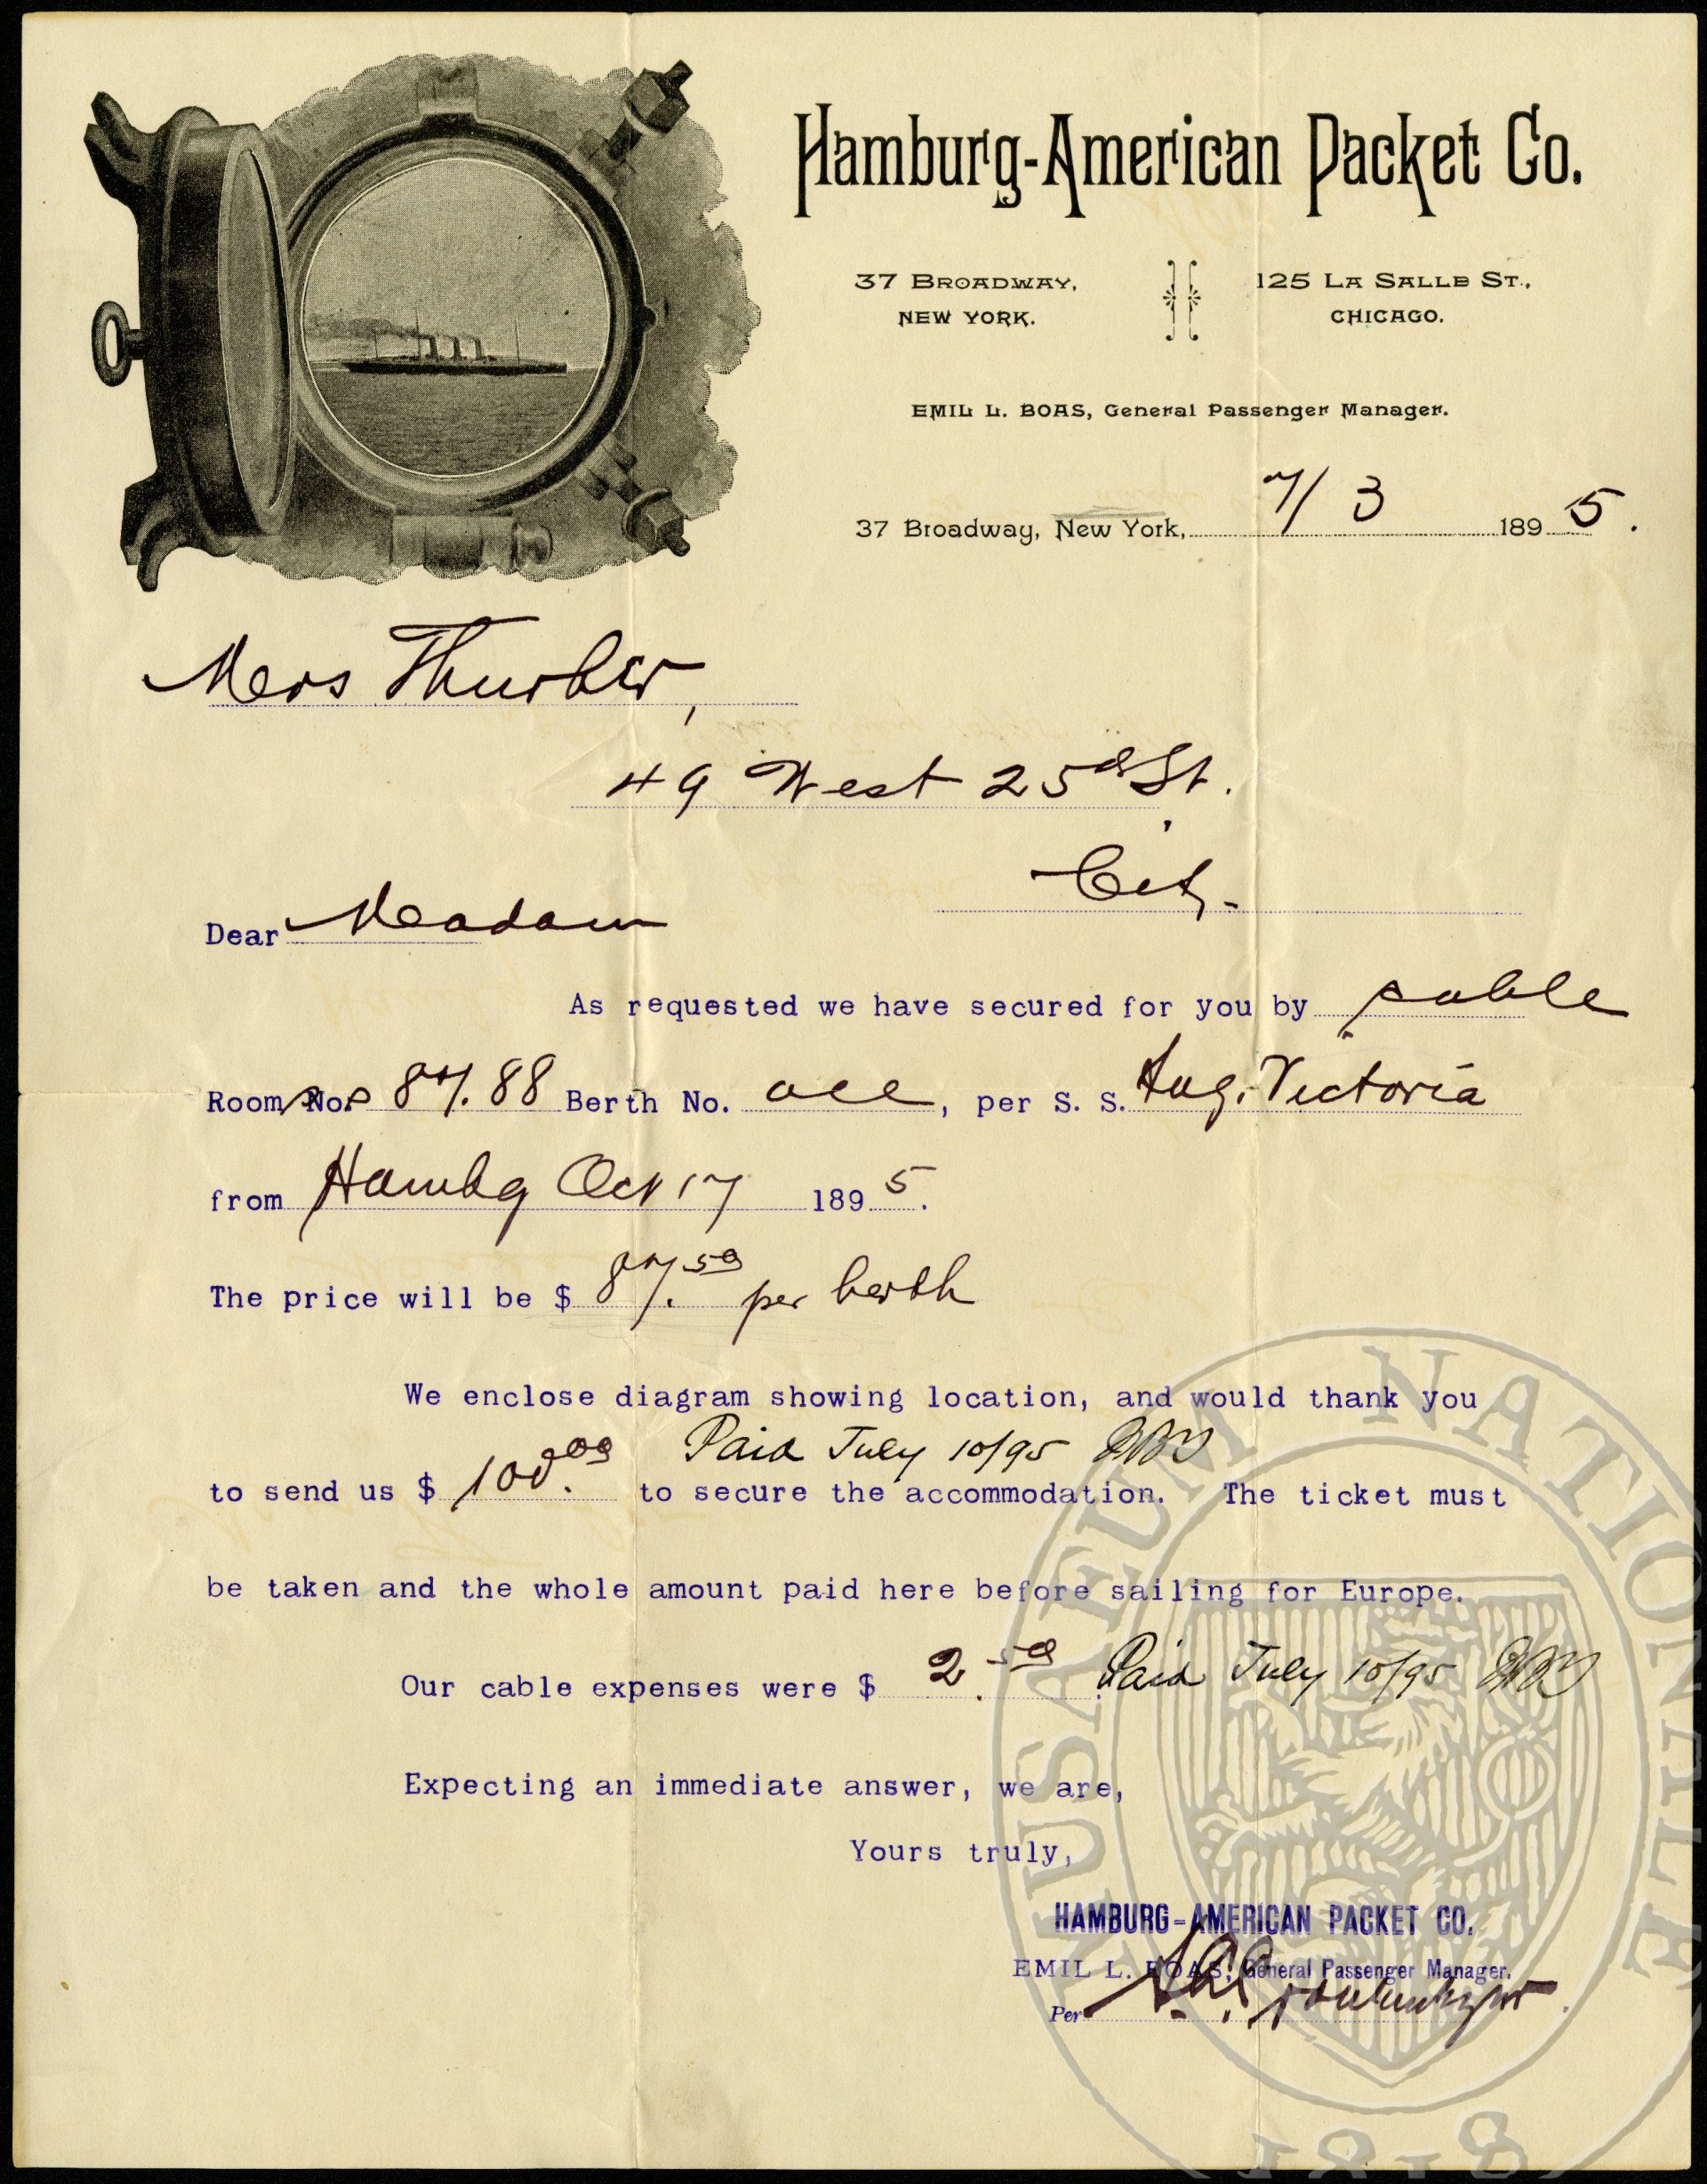 Hamburg-American Packet Co.
37 BROADWAY,
NEW YORK.
125 LA SALLE ST.,
CHICAGO.
EMIL L. BOAS, General Passenger Manager.
37 Broadway, New York, 7/3 1895.
Mrs Thurber,
49 West 25d St.
City.
Dear Madam
As requested we have secured for you by cable
Rooms Nos 87.88 Berth No. all, per S. S. Aug. Victoria
from Hambg Oct 17 1895.
The price will be $ 87.50 per berth
We enclose diagram showing location, and would thank you
Paid July 10/95
to send us $ 100.00 to secure the accommodation. The ticket must
be taken and the whole amount paid here before sailing for Europe.
Our cable expenses were $ 2.50 Paid July 10/95
Expecting an immediate answer, we are,
Yours truly,
HAMBURG-AMERICAN PACKET CO.
EMIL L. BOAS, General Passenger Manager.
Per
MUSAEUM NATIONALE
1818